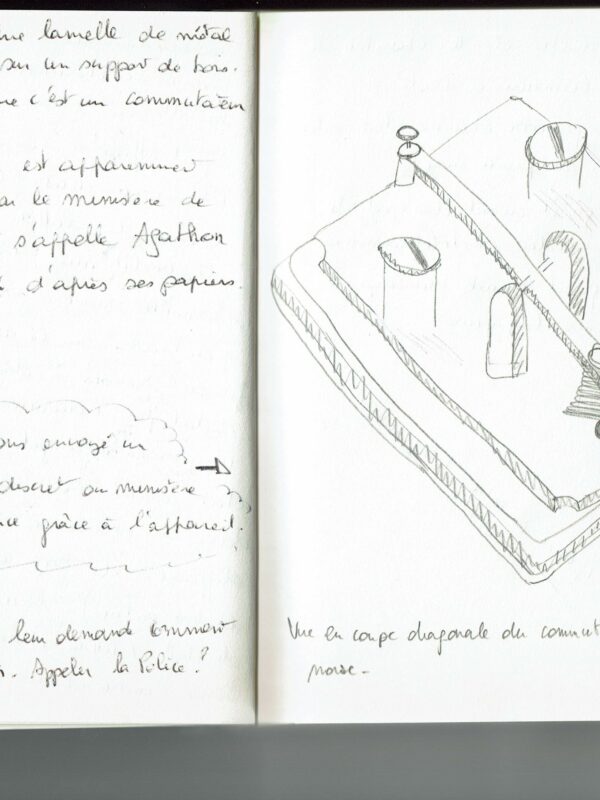 une lamelle de métal
sur un support de bois.
c'est un commutateur
est apparemment
le ministère de
s'appelle Agathon
d'après ses papiers.
envoyé un
discret au ministère
grâce à l'appareil.
leur demande comment
Appeler la Police ?
Vue en coupe diagonale du commut
morse.